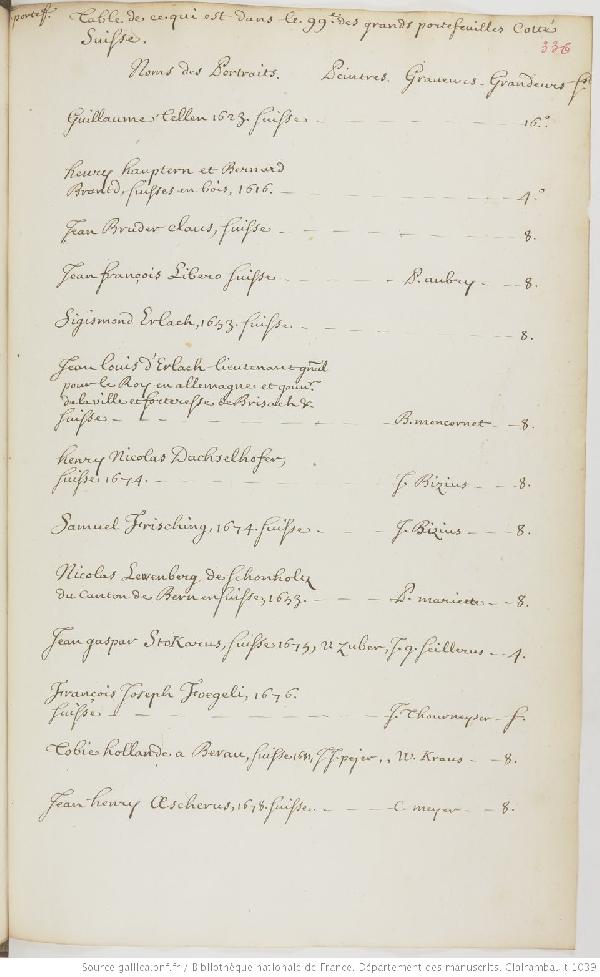 portef. Table de ce qui est dans le 99.e des grands portefeuilles Cotté
Suisse.
336
Noms des Portraits. Peintres. Graveurs - Grandeurs
Guillaume Tellen 1623. suisse - 16.º
henry hauptern et Bernard
Brand, suisses en bois, 1616. - 4.º
Jean Bruder claus, suisse - 8.
Jean françois Libero suisse - P. aubry - 8.
Sigismond Erlach, 1653. suisse - 8.
Jean louis d'Erlach lieutenant gñal
pour le Roy en allemagne et gouvr.
de la ville et forteresse de Brisach &
suisse - B. moncornet - 8.
henry Nicolas Dachselhofer,
suisse 1674. - J. Bizius - 8.
Samuel Frisching, 1674. suisse - J. Bizius - 8.
Nicolas Lewenberg de schonholtz
du Canton de Bern en suisse, 1653. - P. mariette - 8.
Jean gaspar Stokarus, suisse 1675, N zuber, J. g. seillerus - 4.
François Joseph Foegeli, 1676.
suisse - J. Thourneyser - f.
Tobie hollande a Berau, suisse, J J. pejer, W. Kraus - 8.
Jean henry Œscherus, 1678. suisse - C. meyer - 8.
Source gallica.bnf.fr / Bibliothèque nationale de France. Département des manuscrits. Clairambault 1039